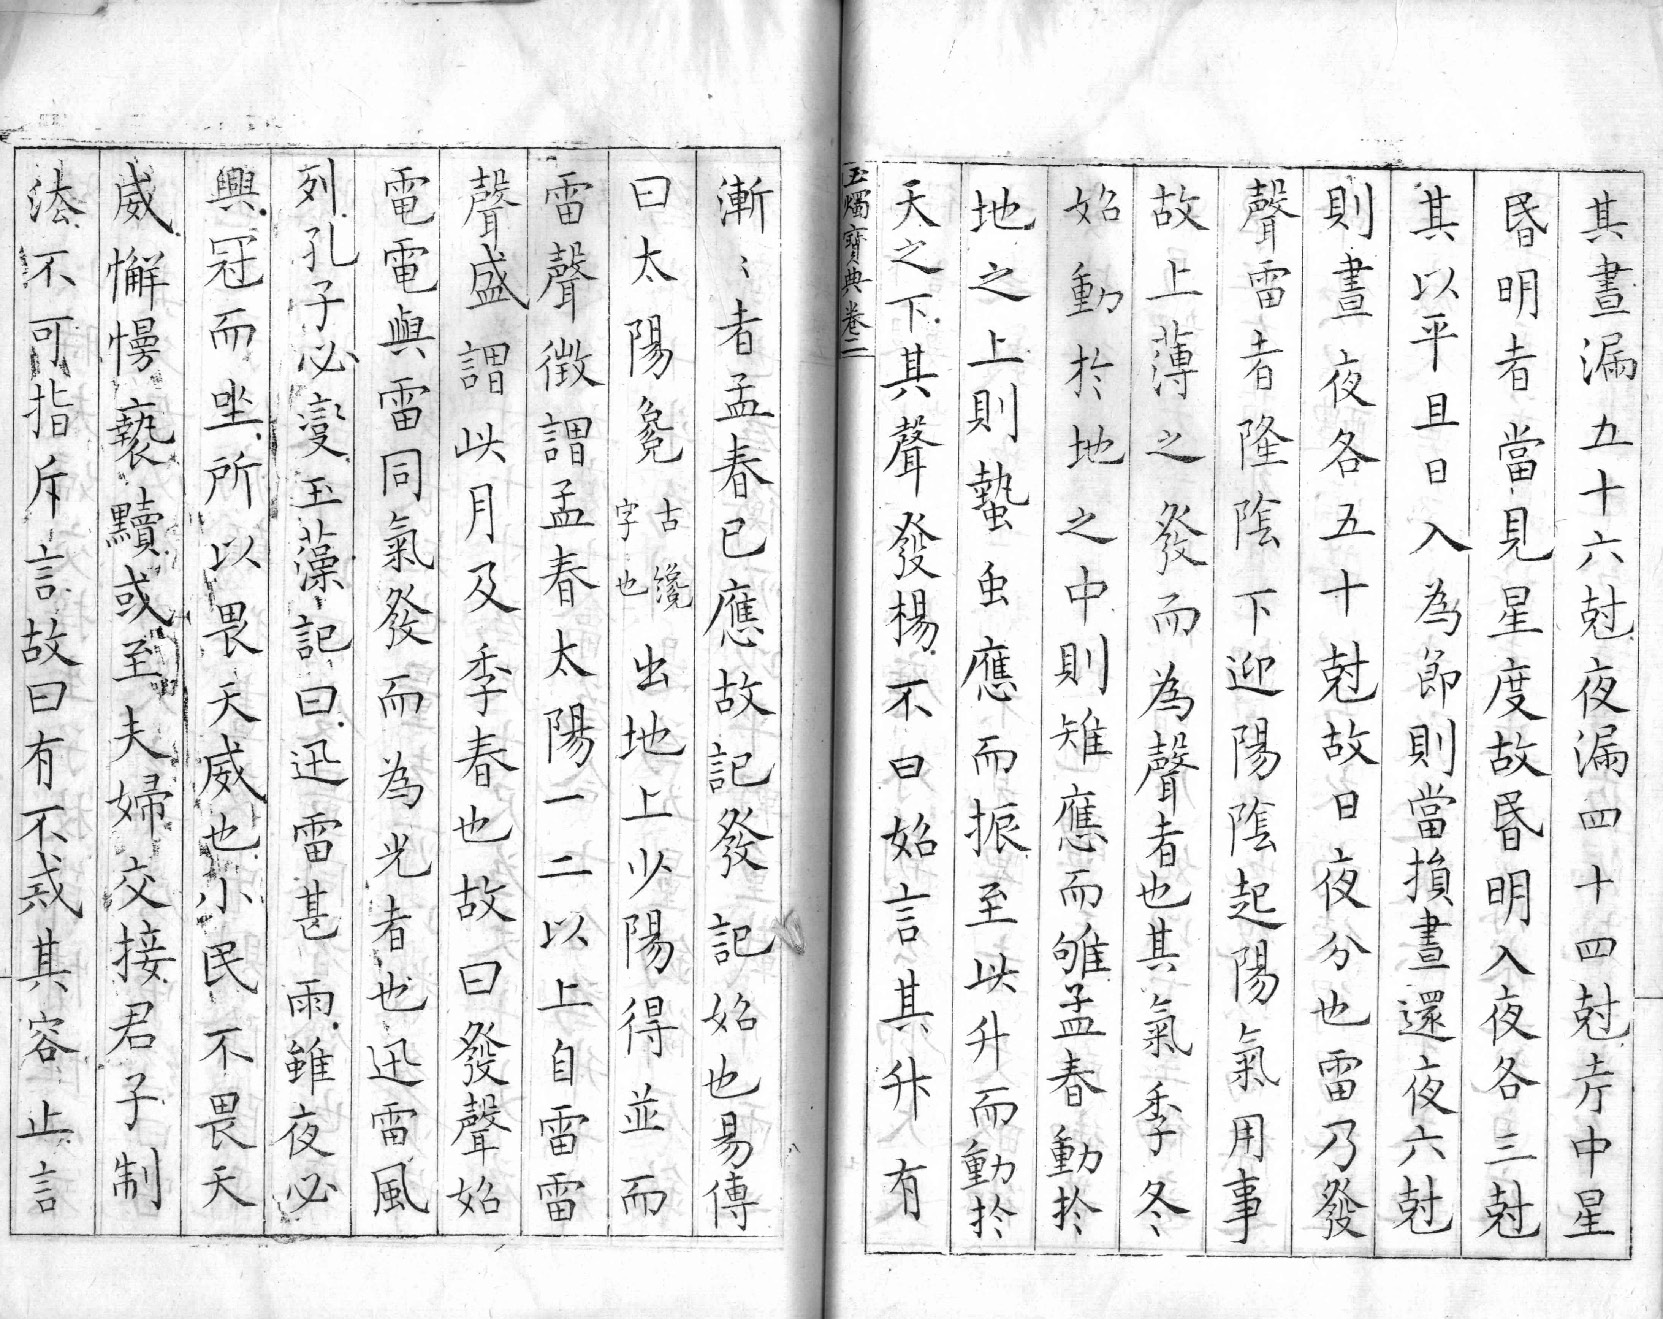 其晝漏五十六尅夜漏四十四尅斉中星
昏明者當見星度故昏明入夜各三尅
其以平旦日入為節則當損晝還夜六尅
則晝夜各五十尅故日夜分也雷乃發
聲雷者隆陰下迎陽陰起陽氣用事
故上薄之發而為聲者也其氣季冬
始動於地之中則雉應而雊孟春動於
地之上則蟄虫應而振至此升而動於
天之下其聲發楊不曰始言其升有
玉燭寶典卷二
漸〻者孟春已應故記發記始也易傳
曰太陽毚古纔字也出地上少陽得並而
雷聲徴謂孟春太陽一二以上自雷雷
聲盛謂此月及季春也故曰發聲始
電電與雷同氣發而為光者也迅雷風
列孔子必變玉藻記曰迅雷甚雨雖夜必
興冠而坐所以畏天威也小民不畏天
威懈慢褻黷或至夫婦交接君子制
法不可指斥言故曰有不戒其容止言